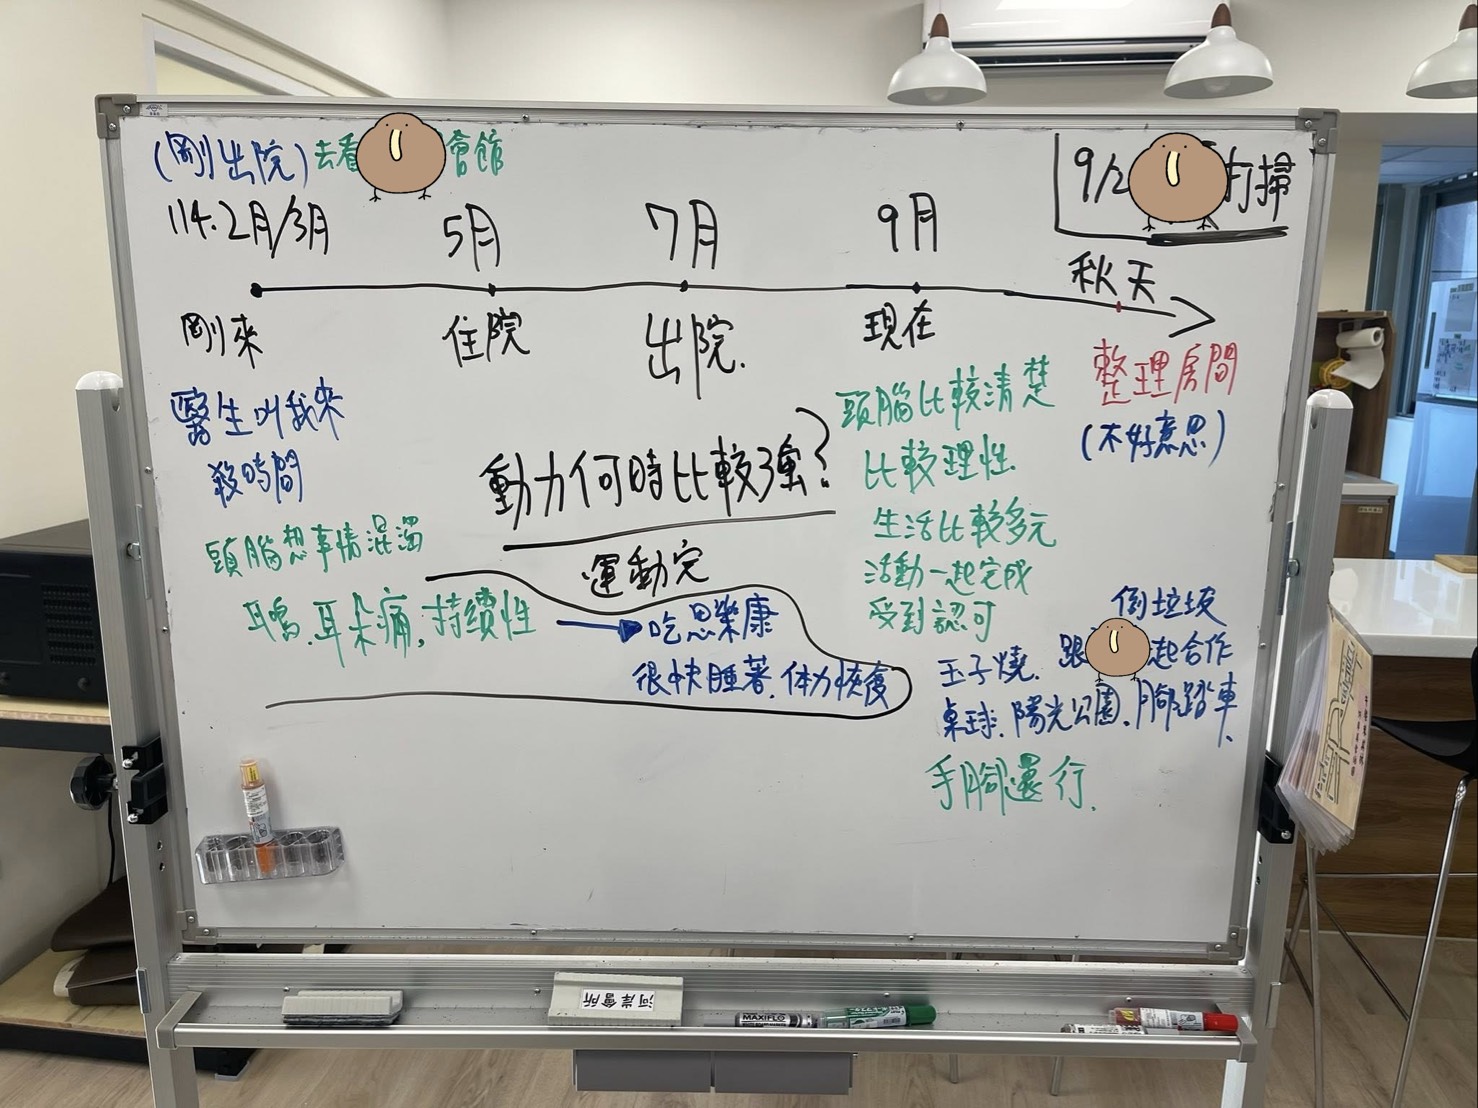 (剛出院)去看 會館
9/2 打掃
114.2月/3月
5月
7月
9月
秋天
剛來
住院
出院.
現在
整理房間
(不好意思)
醫生叫我來
殺時間
頭腦想事情混濁
耳鳴.耳朵痛,持續性
動力何時比較強?
運動完
吃思樂康
很快睡著.体力恢復
頭腦比較清楚
比較理性.
生活比較多元
活動一起完成
受到認可
倒垃圾
玉子燒. 跟 起合作
桌球.陽光公園.腳踏車.
手腳還行.
河岸會所
MAXIFLO